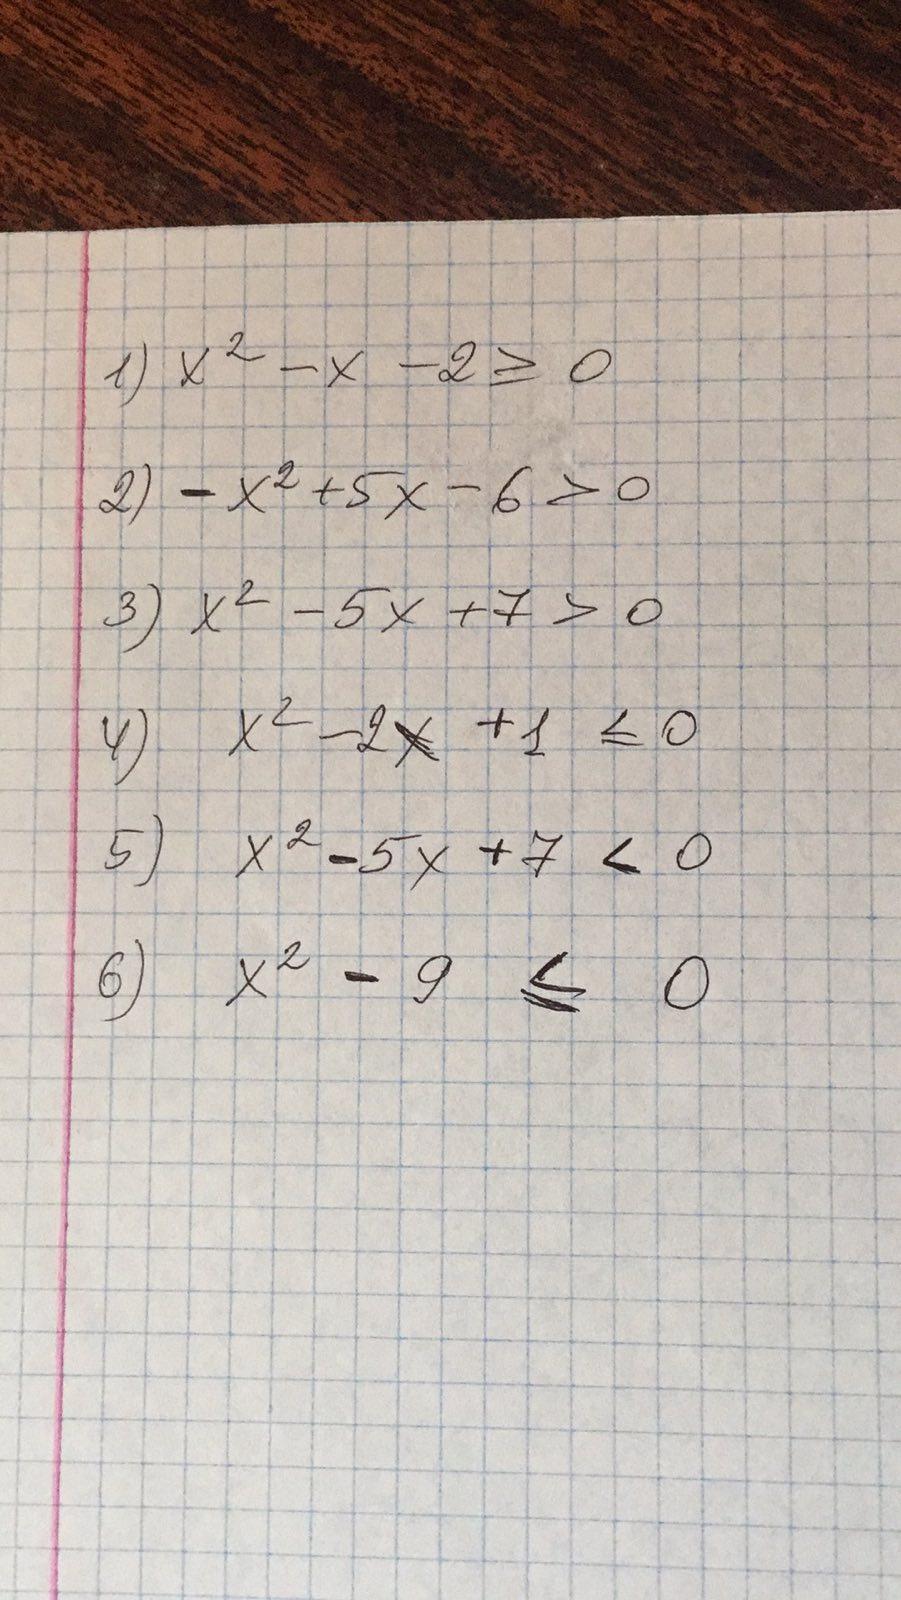 1) x² - x - 2 ≥ 0
2) - x² + 5x - 6 > 0
3) x² - 5x + 7 > 0
4) x² - 2x + 1 ≤ 0
5) x² - 5x + 7 < 0
6) x² - 9 ≤ 0